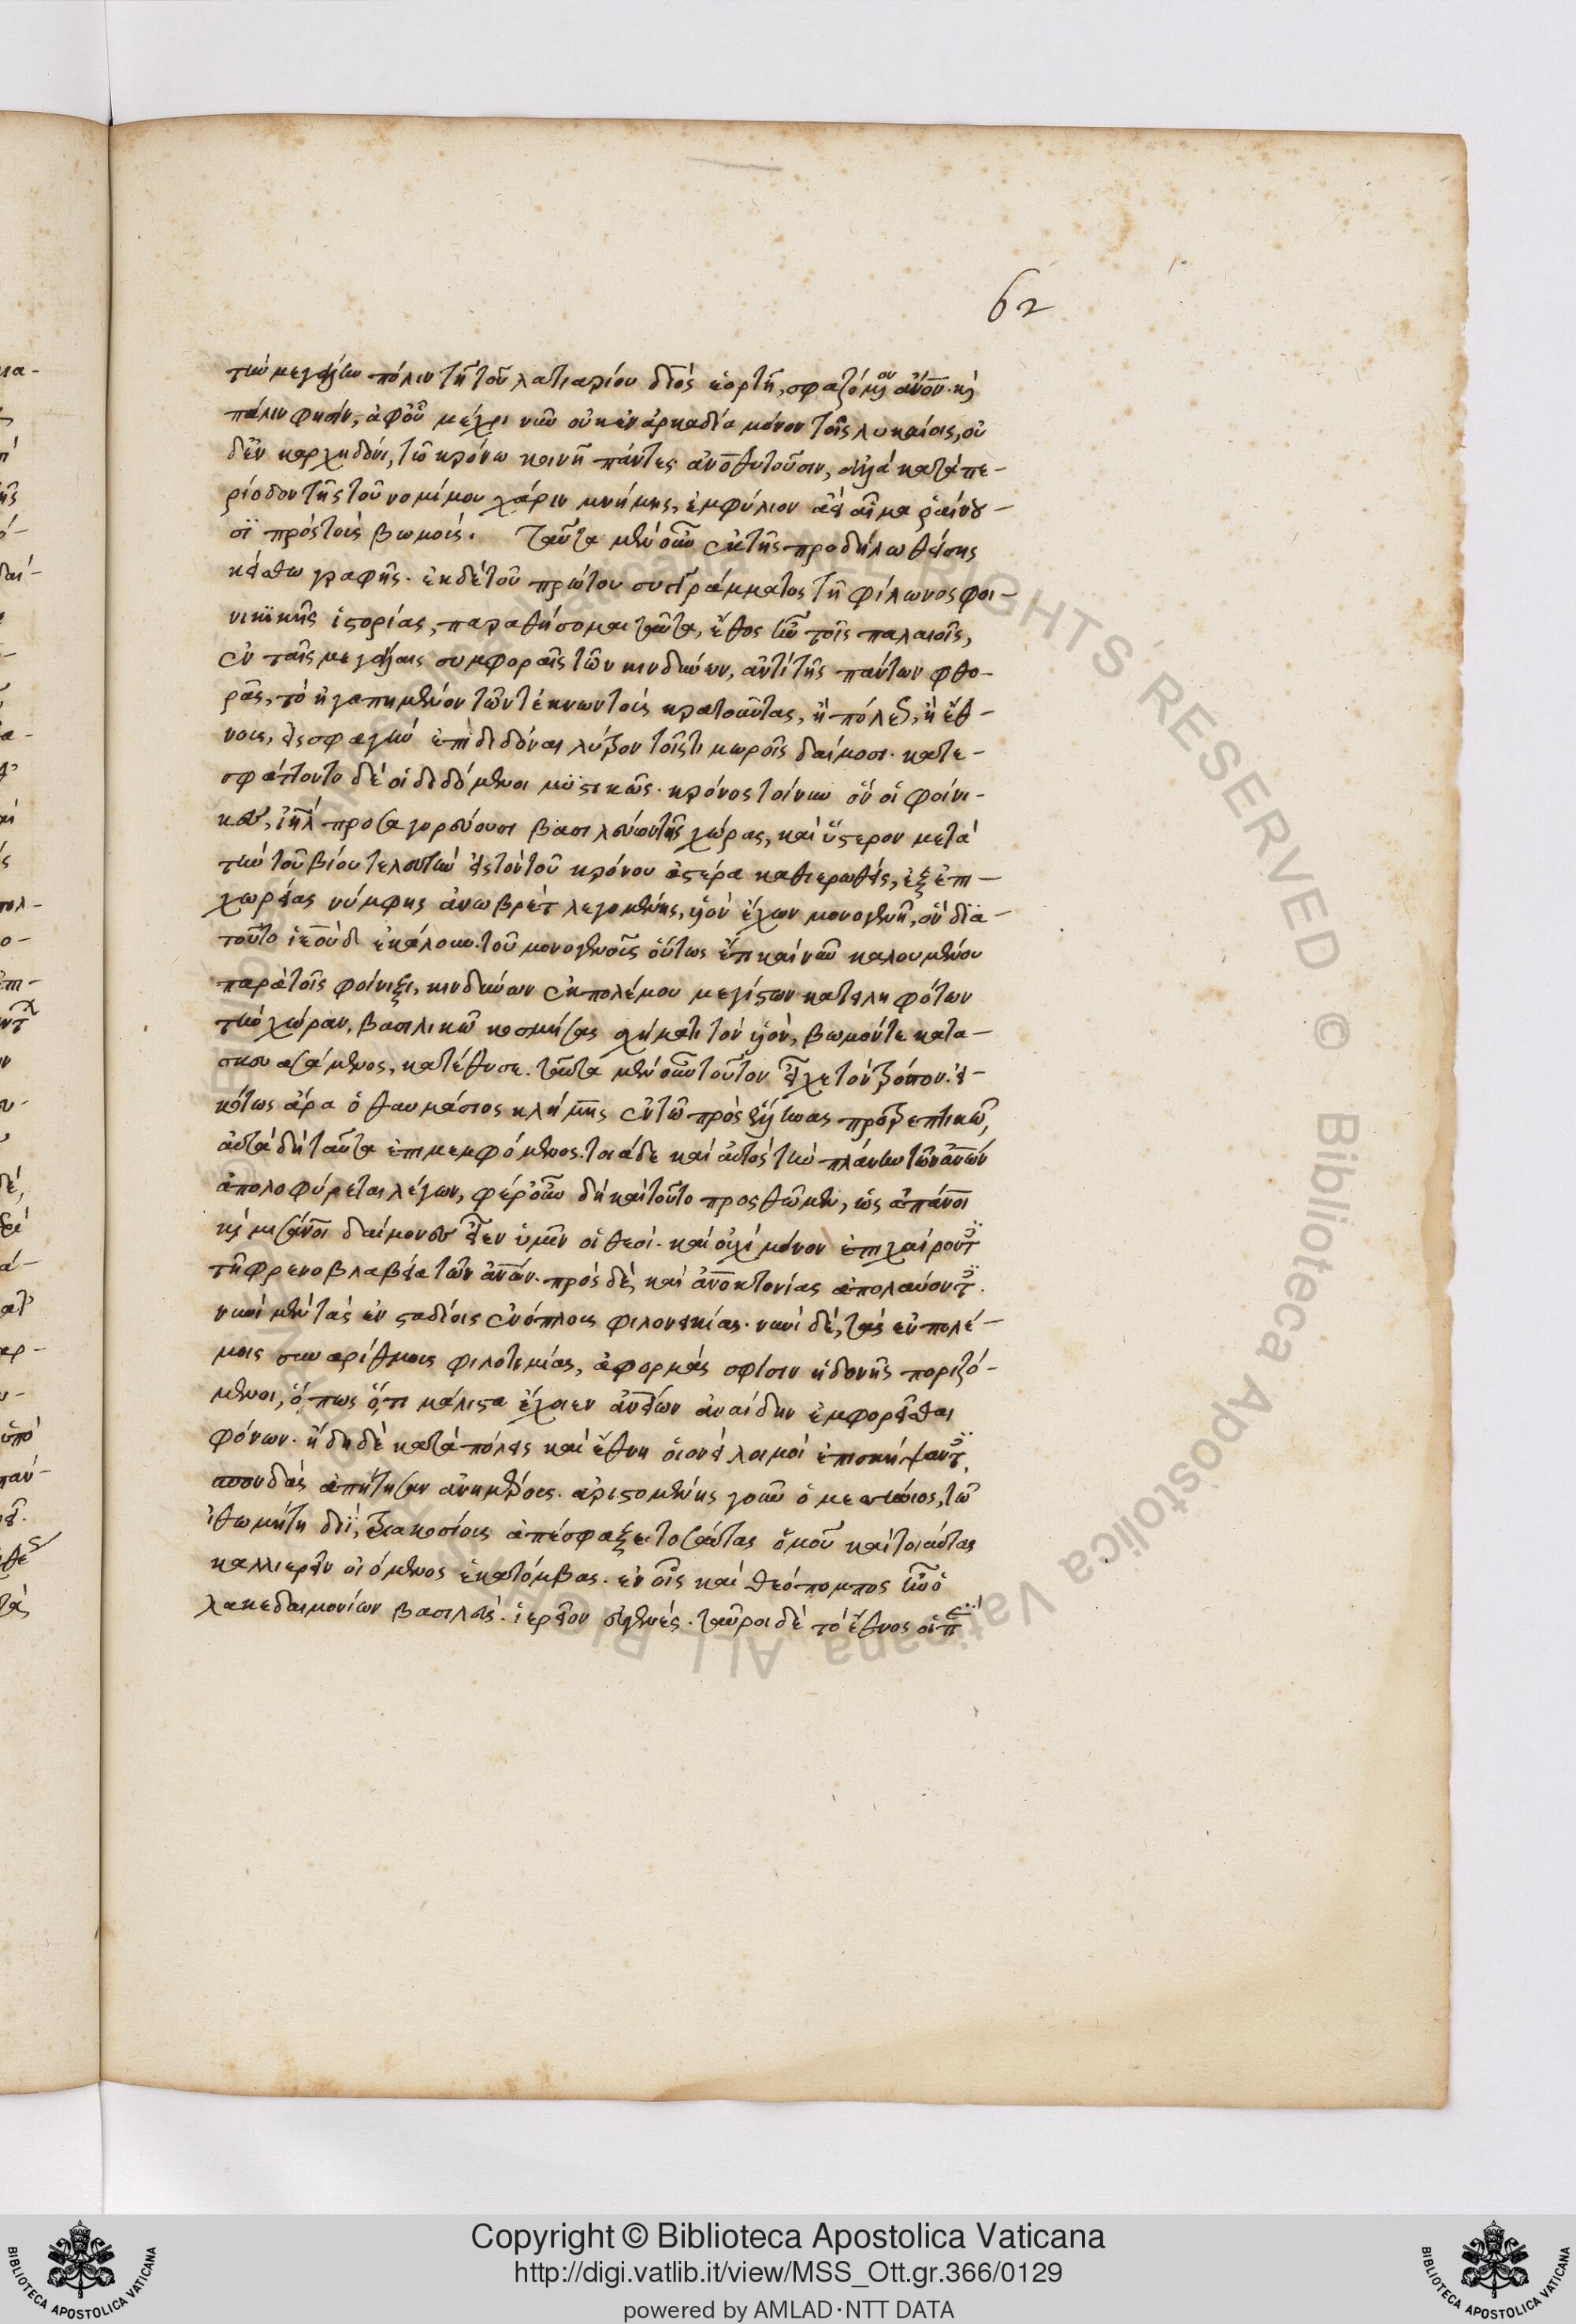 62
τὴν μεγάλην πόλιν τῇ τοῦ λατιαρίου διὸς ἑορτῇ, σφαζόμενον ἄνον. καὶ
πάλιν φησίν, ἀφ' οὗ μέχρι νῦν οὐκ ἐν ἀρκαδία μόνον τοῖς λυκαίοις, οὐ
δ' ἐν καρχηδόνι, τῶ κρόνω κοινῆ πάντες ἀνοθυτοῦσιν, ἀλλὰ κατὰ πε-
ρίοδον τῆς τοῦ νομίμου χάριν μνήμης, ἐμφύλιον ἀεὶ αἷμα ῥαίνου-
σϊ πρὸς τοὺς βωμούς. ταῦτα μὲν οὖν ἐκ τῆς προδηλωθείσης
κείσθω γραφῆς. ἐκ δὲ τοῦ πρώτου συγγράμματος τῆς φίλωνος φοι-
νικϊκῆς ἱστορίας, παραθήσομαι ταῦτα, ἔθος ἦν τοῖς παλαιοῖς,
ἐν ταῖς μεγάλαις συμφοραῖς τῶν κινδύνων, ἀντὶ τῆς πάντων φθο-
ρᾶς, τὸ ἠγαπημένον τῶν τέκνων τοὺς κρατοῦντας, ἢ πόλεως, ἢ ἔθ-
νους, εἰς σφαγὴν ἐπιδιδόναι λύτρον τοῖς τιμωροῖς δαίμοσι. κατε-
σφάττοντο δὲ οἱ διδόμενοι μυϊστικῶς. κρόνος τοίνυν ὃν οἱ φοίνι-
κες, ἰηλ προσαγορεύουσι βασιλεύων τῆς χώρας, καὶ ὕστερον μετὰ
τὴν τοῦ βίου τελευτὴν εἰς τὸν τοῦ κρόνου ἀστέρα καθιερωθεὶς, ἐξ ἐπι-
χωρίας νύμφης ἀνωβρὲτ λεγομένης, υἱὸν ἔχων μονογενῆ, ὃν δϊα-
τοῦτο ἰεοὺδ ἐκάλουν. τοῦ μονογενοῦς οὕτως ἔτι καὶ νῦν καλουμένου
παρὰ τοῖς φοίνιξι, κινδύνων ἐκ πολέμου μεγίστων κατειληφότων
τὴν χώραν, βασιλικῶ κοσμήσας σχήματι τὸν υἱὸν, βωμόν τε κατα-
σκευασάμενος, κατέθυσε. ταῦτα μὲν οὖν τοῦτον εἶχε τὸν τρόπον. εἰ-
κότως ἄρα ὁ θαυμάσιος κλήμης ἐν τῶ πρὸς ἕλληνας προτρεπτικῶ,
αὐτὰ δὴ ταῦτα ἐπιμεμφόμενος. τοιάδε καὶ αὐτὸς τὴν πλάνην τῶν ἀνων
ἀπολοφύρεται λέγων, φέρ' οὖν δὴ καὶ τοῦτο προσθῶμεν, ὡς ἀπάνοι
καὶ μισάνοι δαίμονες εἶεν ὑμῶν οἱ θεοί. καὶ οὐχὶ μόνον ἐπιχαίροντες
τῇ φρενοβλαβεία τῶν ἀνων. πρὸς δὲ, καὶ ἀνοκτονίας ἀπολαύοντες.
νυνὶ μὲν τὰς ἐν σταδίοις ἐνόπλους φιλονεικίας. νυνὶ δὲ, τὰς ἐν πολέ-
μοις ἀναρίθμους φιλοτιμίας, ἀφορμάς σφισιν ἡδονῆς ποριζό-
μενοι, ὅπως ὅτι μάλιστα ἔχοιεν ἀνείων ἀναίδην ἐμφορεῖσθαι
φόνων. ἤδη δὲ κατὰ πόλεις καὶ ἔθνη οἱονεὶ λοιμοὶ ἐπισκήψαντες,
σπονδὰς ἀπήτησαν ἀνημέρους. ἀριστομένης γοῦν ὁ μεσσήνιος, τῶ
ἰθωμήτη διὶ, τριακοσίους ἀπέσφαξε τοσαύτας ὁμοῦ καὶ τοιαύτας
καλλιερεῖν οἰόμενος ἑκατόμβας. ἐν οἷς καὶ θεόπομπος ἦν ὁ
λακεδαιμονίων βασιλεὺς. ἱερεῖον εὐγενές. ταῦροι δὲ τὸ ἔθνος οἱ π